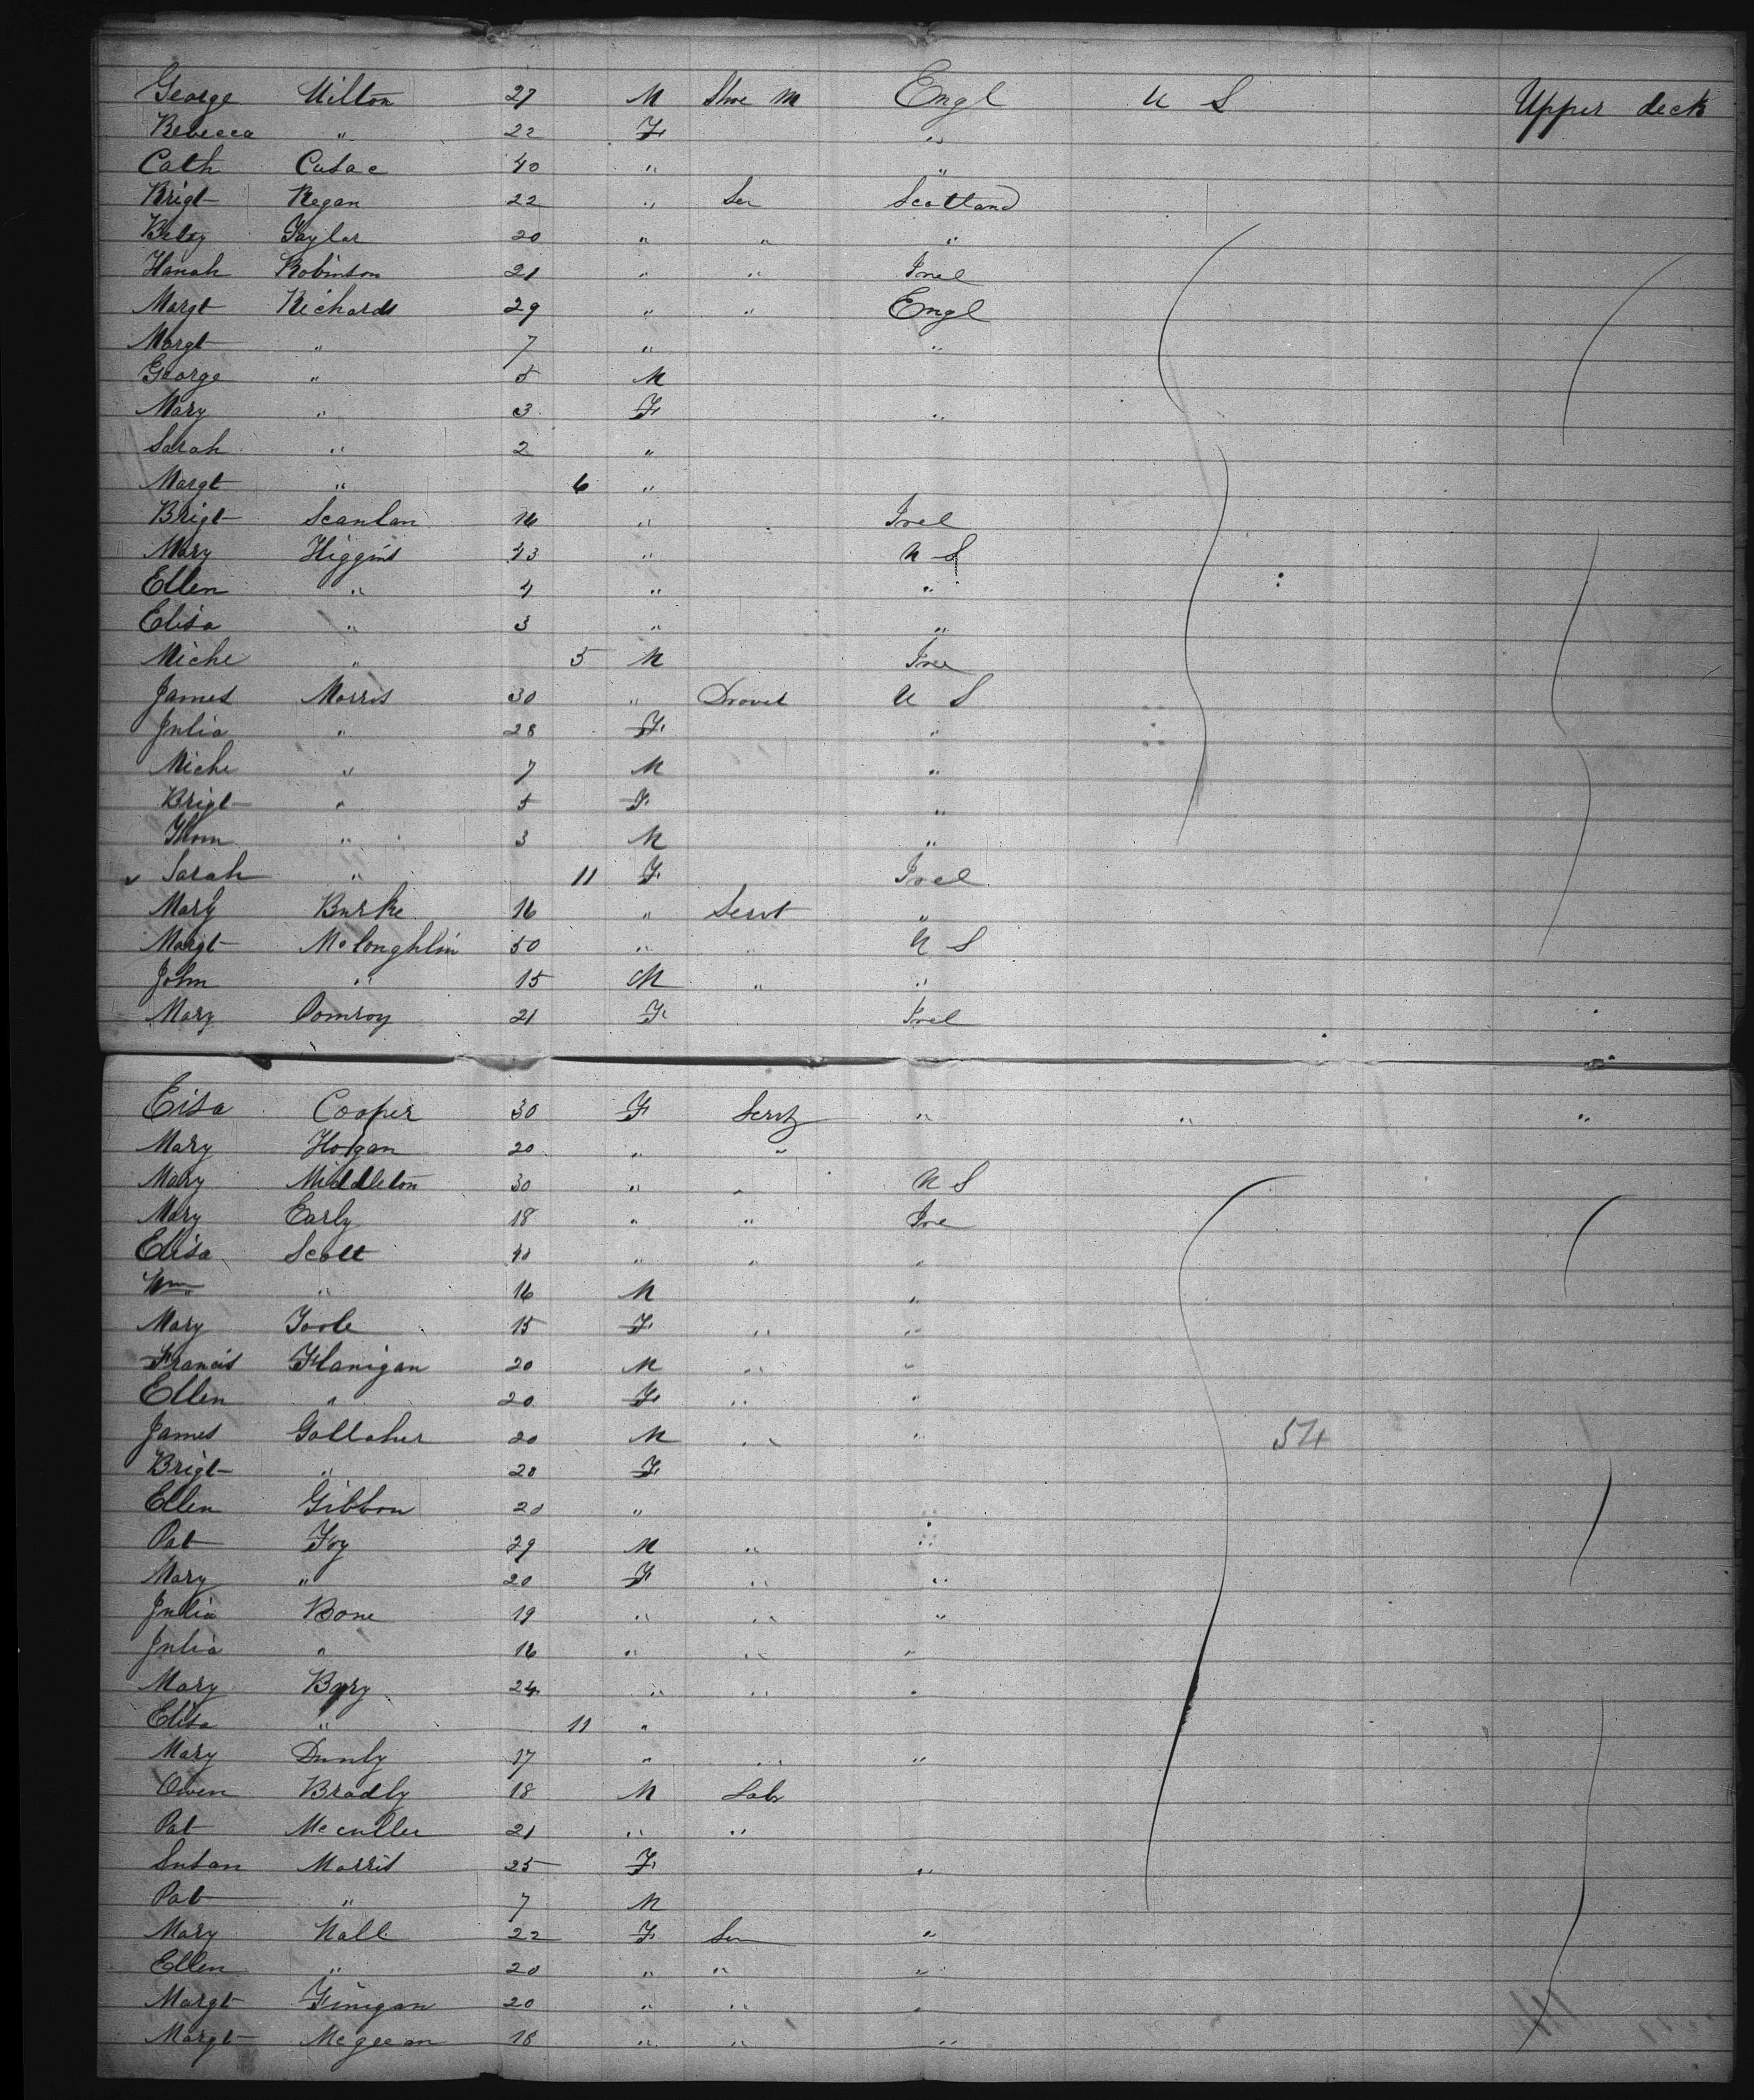 George Milton 27 M Shoe M Engl U S Upper deck
Rebecca " 22 F "
Cath Cusac 40 " "
Brigt Regan 22 " Ser Scotland
Betsy Taylor 20 " " "
Hanah Robinson 21 " " Irel
Margt Richards 29 " " Engl
Margt " 7 " "
George " 5 M
Mary " 3 F "
Sarah " 2 "
Margt " 6 "
Brigt Scanlan 16 " Irel
Mary Higgins 43 " U S
Ellen " 4 " "
Elisa " 3 " "
Miche " 5 M Ire
James Morris 30 " Drover U S
Julia " 28 F "
Miche " 7 M "
Brigt " 5 F "
Thom " 3 M "
Sarah " 11 F Irel
Mary Burke 16 " Servt "
Margt McLoughlin 50 " U S
John " 15 M " "
Mary Pomroy 21 F Irel
Eisa Cooper 30 F Servt " " "
Mary Hogan 20 " "
Mary Middleton 30 " " U S
Mary Early 18 " " Ire
Elisa Scott 40 " " "
Wm " 16 M "
Mary Toole 15 F " "
Francis Flanigan 20 M " "
Ellen " 20 F " "
James Gallaher 20 M " " 54
Brigt " 20 F
Ellen Gibbon 20 "
Pat Foy 29 M " "
Mary " 20 F " "
Julia Bone 19 " " "
Julia " 16 " " "
Mary Bary 24 " " "
Elisa " 11 "
Mary Dunly 17 " " "
Owen Bradly 18 M Labr
Pat McCullen 21 " "
Susan Morris 25 F "
Pat " 7 M
Mary Hall 22 F Ser "
Ellen " 20 " " "
Margt Finigan 20 " " "
Margt McGeean 18 " " "